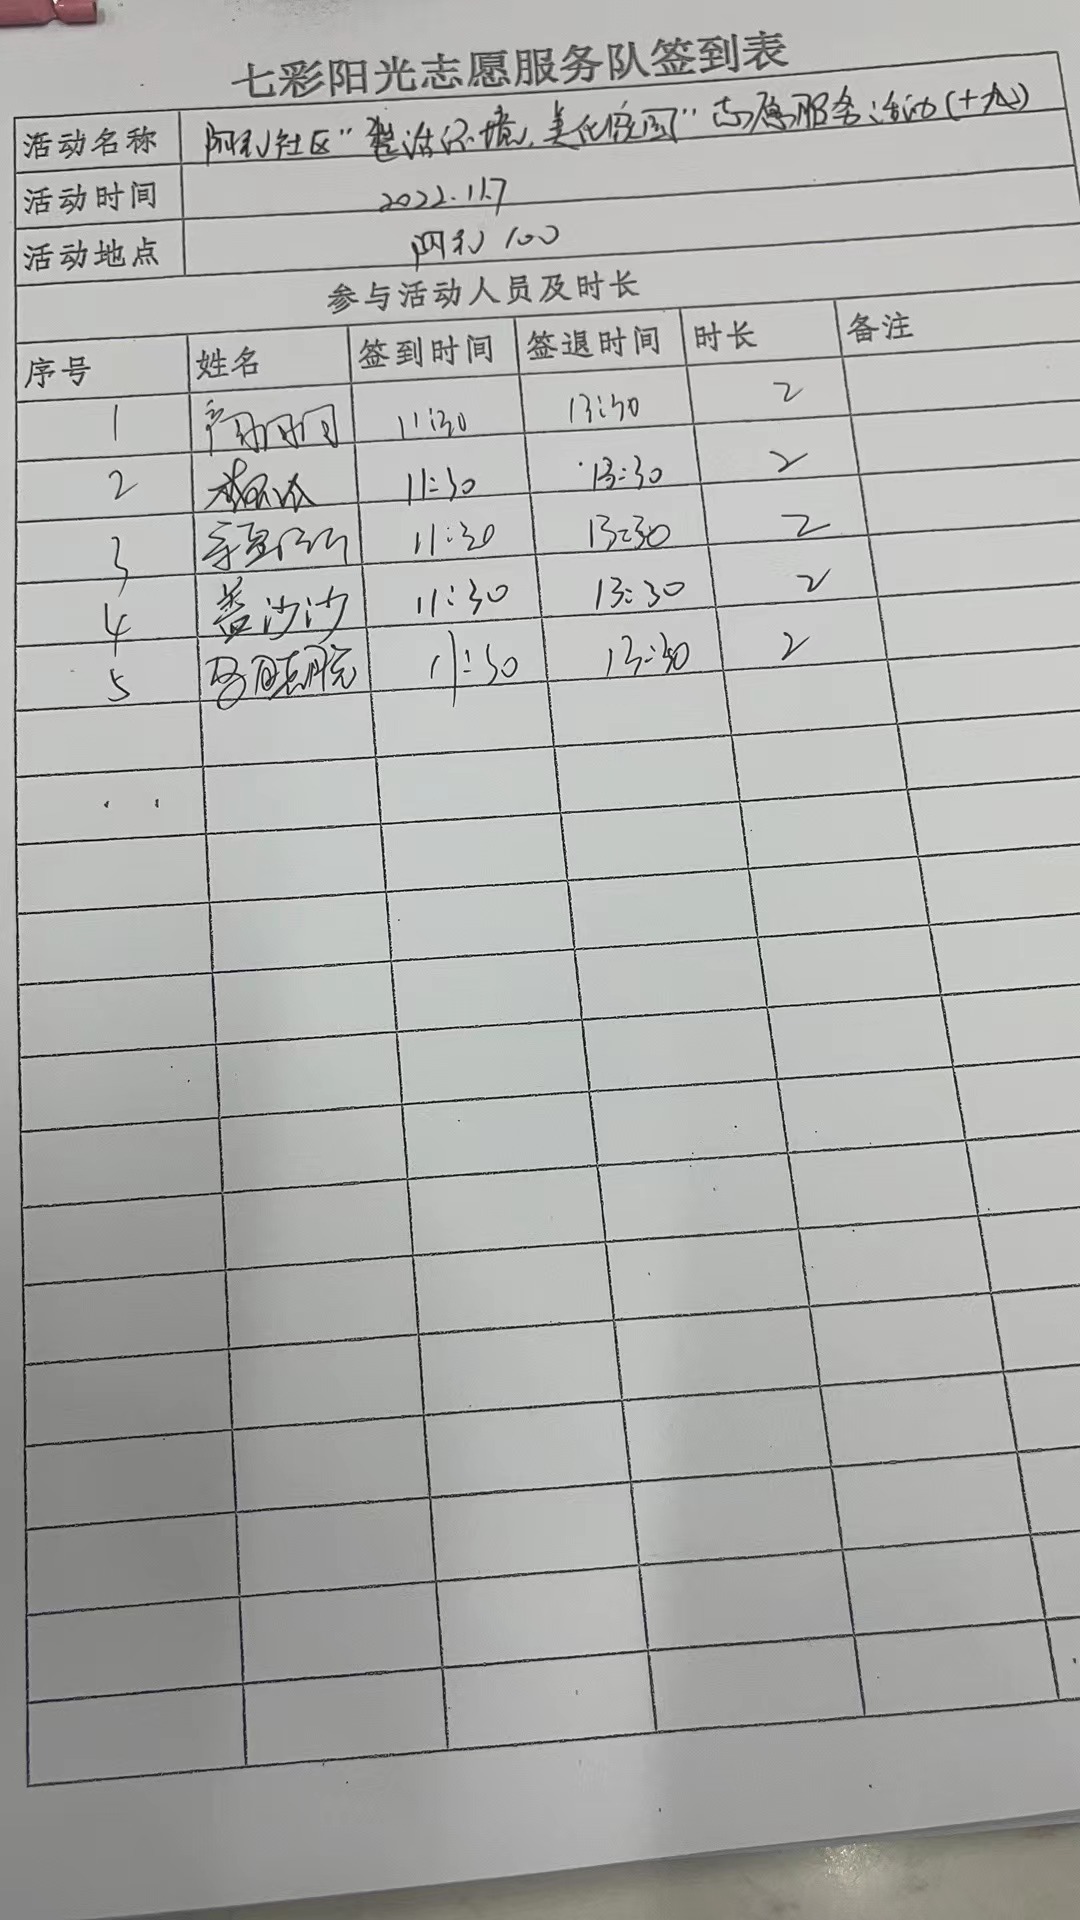 七彩阳光志愿服务队签到表
活动名称 阿利社区"整治环境、美化家园"志愿服务活动(十九)
活动时间 2022.11.7
活动地点 阿利 100
参与活动人员及时长
序号 姓名 签到时间 签退时间 时长 备注
1 11:30 13:30 2
2 11:30 13:30 2
3 11:30 13:30 2
4 普沙沙 11:30 13:30 2
5 11:30 13:30 2